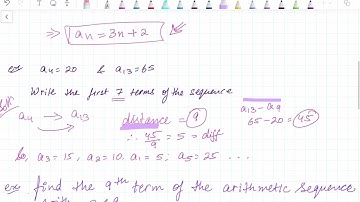 ⇒ aₙ = 3n + 2
ex a₄ = 20 & a₁₃ = 65
Write the first 7 terms of the sequence
Sol:
a₄ → a₁₃ distance = 9 a₁₃ - a₉
65 - 20 = 45
∴ 45/9 = 5 = diff
So, a₃ = 15, a₂ = 10. a₁ = 5, a₅ = 25 ...
ex find the 9th term of the arithmetic sequence